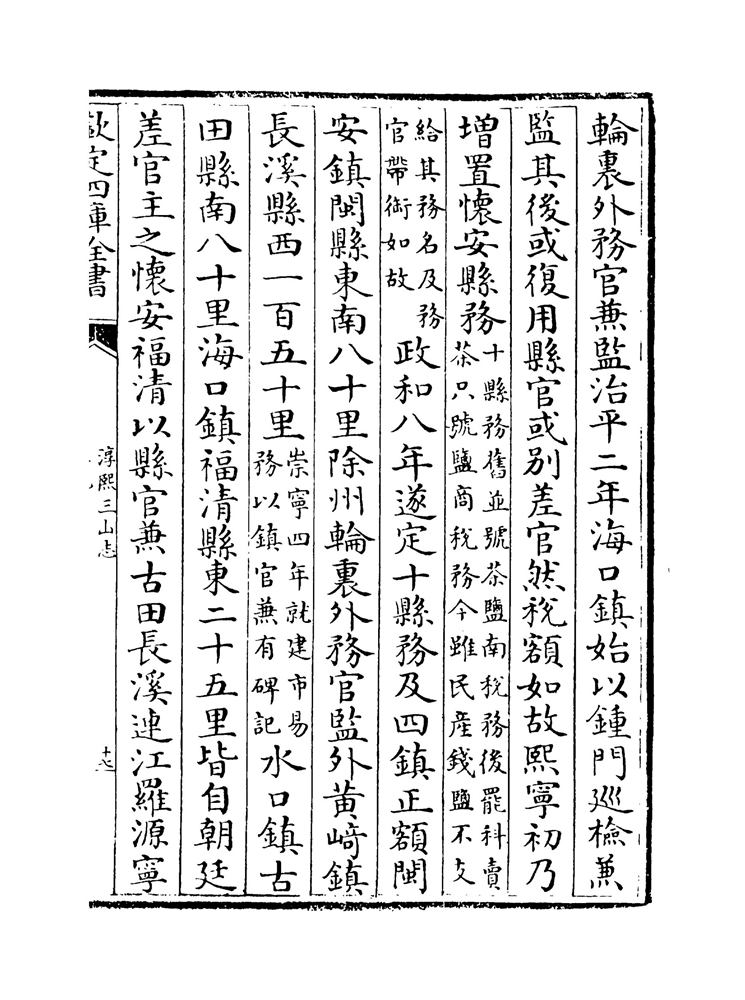 輪裏外務官兼監治平二年海口鎮始以鍾門廵檢兼
監其後或復用縣官或别差官然稅額如故熙寧初乃
増置懷安縣務十縣務舊並號茶鹽南稅務後罷科賣茶只號鹽商稅務今雖民産錢鹽不支
給其務名及務官帶銜如故政和八年遂定十縣務及四鎮正額閩
安鎮閩縣東南八十里除州輪裏外務官監外黄﨑鎮
長溪縣西一百五十里崇寧四年就建市易務以鎮官兼有碑記水口鎮古
田縣南八十里海口鎮福清縣東二十五里皆自朝廷
差官主之懷安福清以縣官兼古田長溪連江羅源寧
欽定四庫全書
淳熙三山志
十七